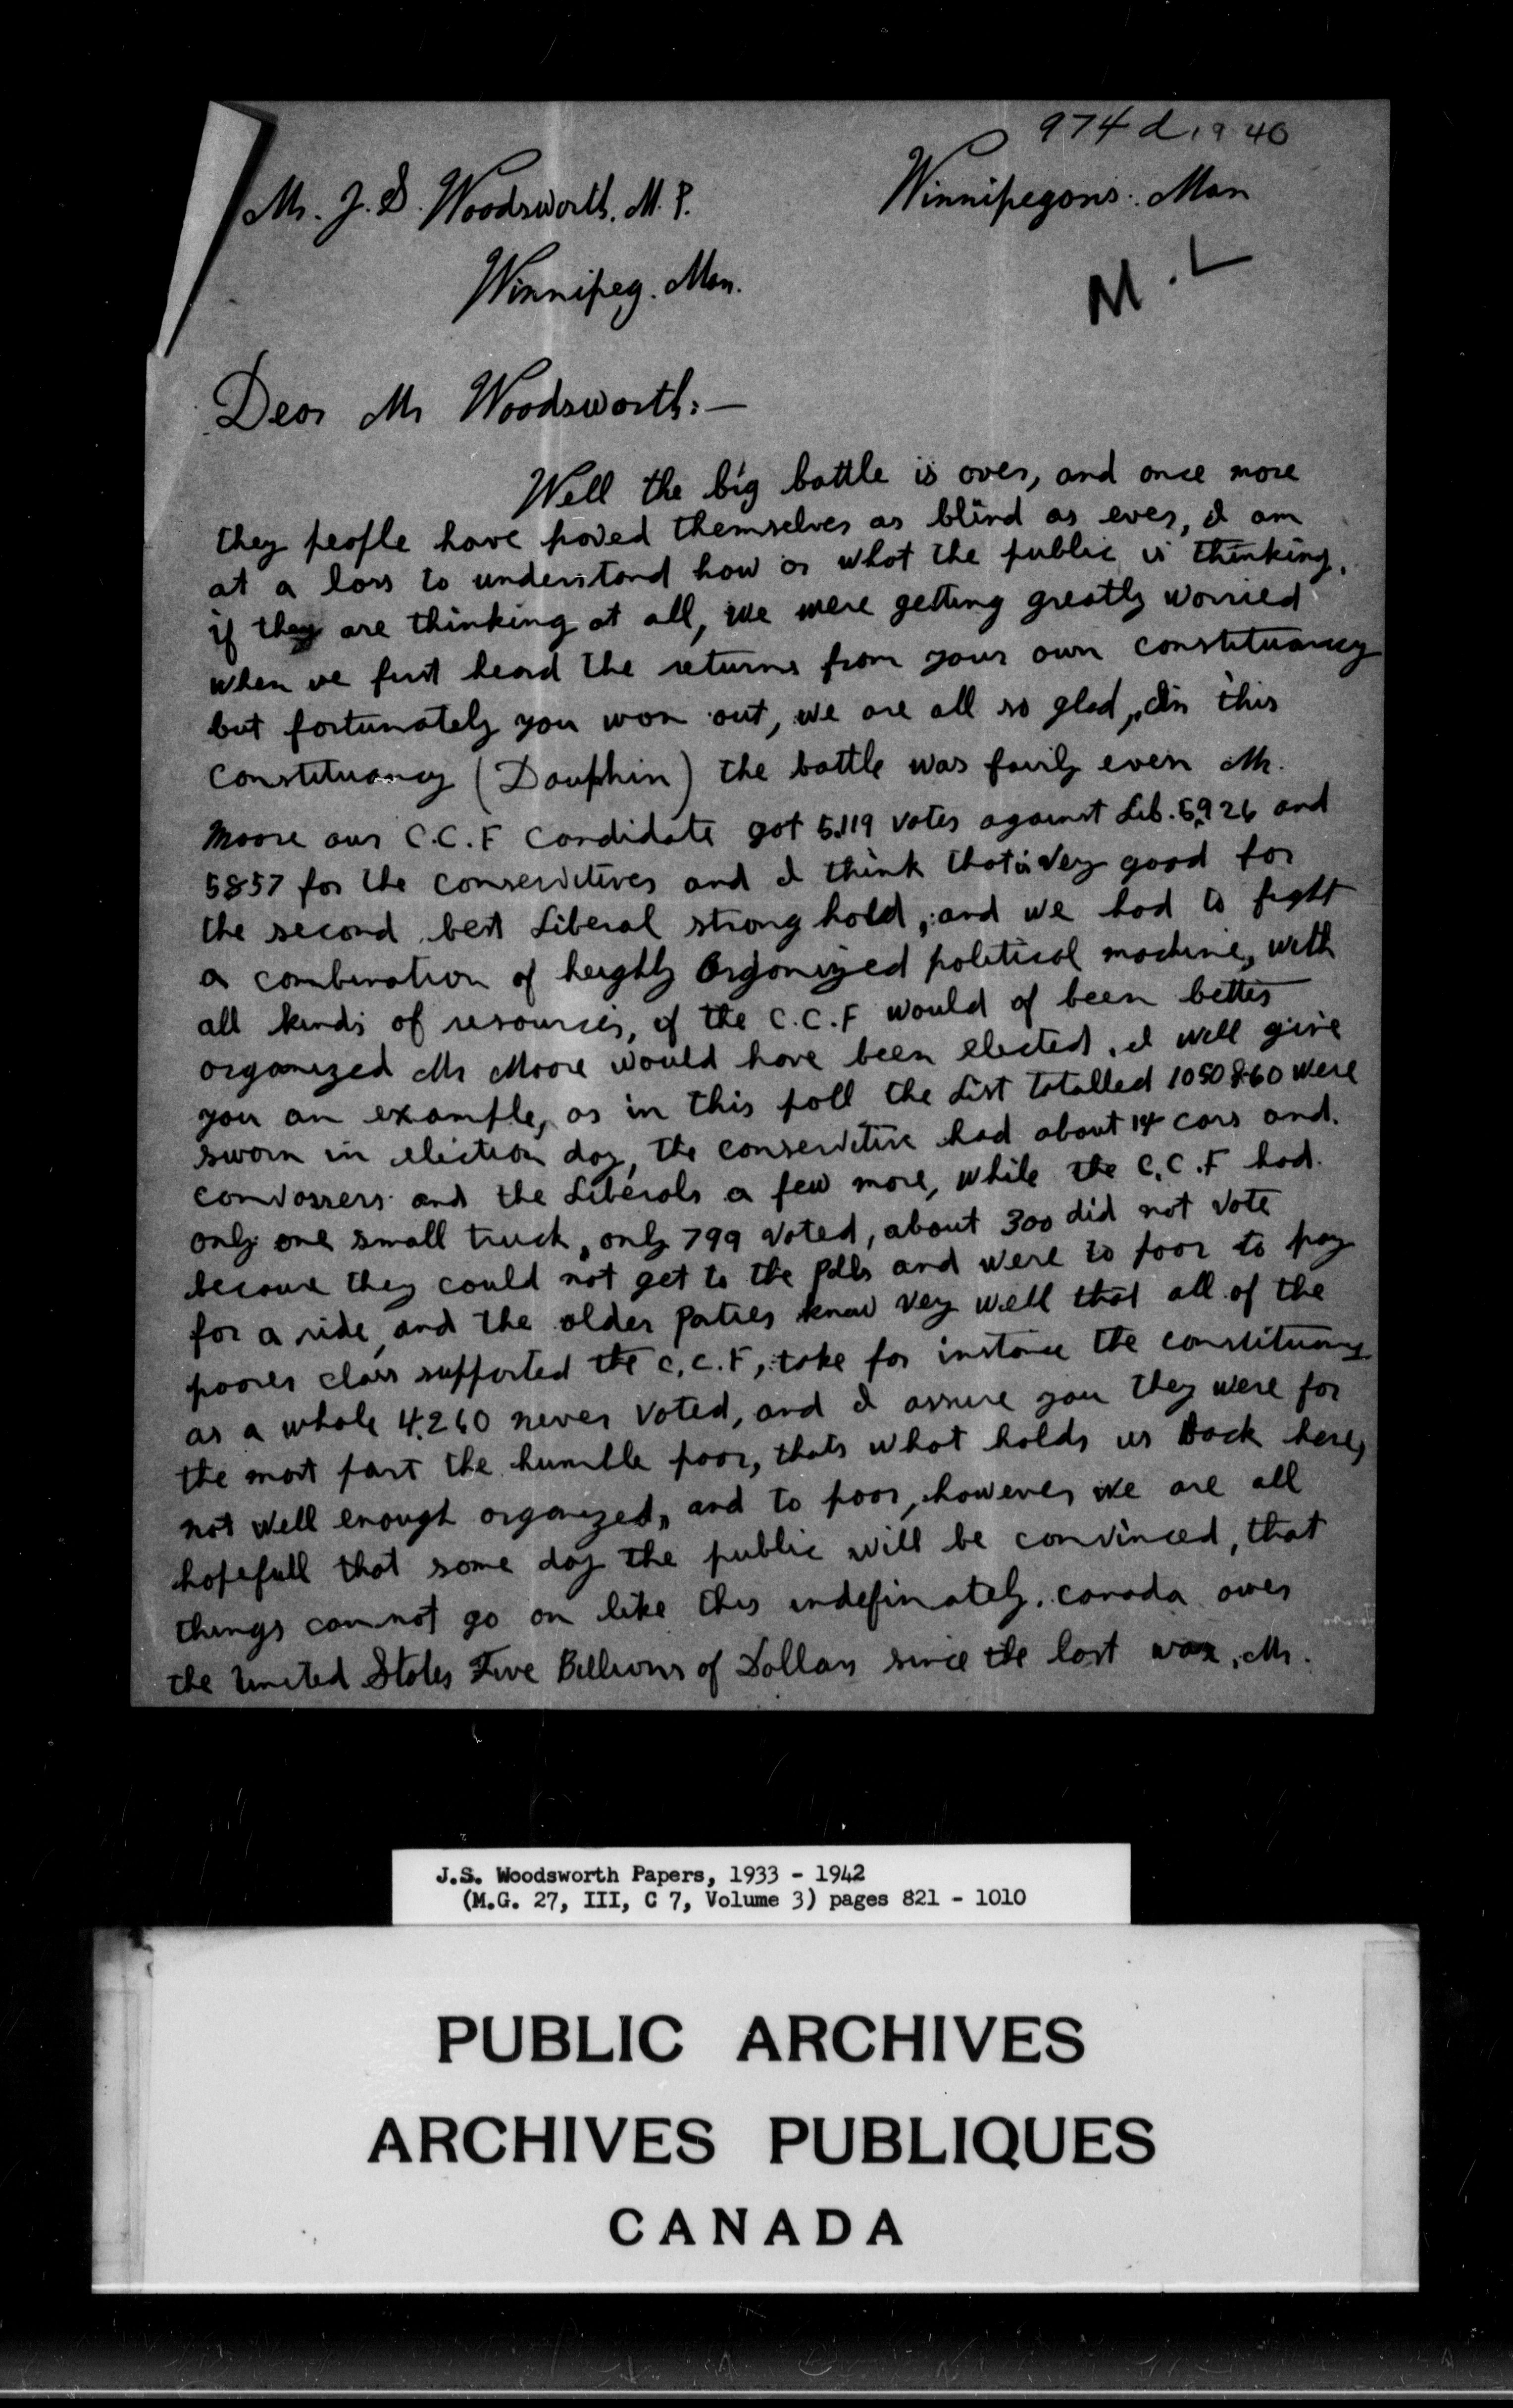 974 d 1940
Mr. J. S. Woodsworth. M. P.
Winnipegosis. Man
Winnipeg. Man.
M. L
Dear Mr Woodsworth:—
Well the big battle is over, and once more
they people have poved themselves as blind as ever, I am
at a loss to understand how or what the public is thinking,
if they are thinking at all, we were getting greatly worried
when we first heard the returns from your own constituancy
but fortunately you won out, we are all so glad, in this
Constituancy (Dauphin) the battle was fairly even Mr.
Moore our C.C.F Candidate got 5,119 votes against Lib. 5,926 and
5857 for the conservitives and I think that is very good for
the second best Liberal strong hold, and we had to fight
a combination of heighly Organized political machine, with
all kinds of resources, if the C.C.F would of been better
organized Mr Moore would have been elected, I will give
you an example, as in this poll the List totalled 1050 & 60 were
sworn in election day, the conservitive had about 14 cars and
convassers and the Liberals a few more, while the C.C.F had
only one small truck, only 799 voted, about 300 did not vote
because they could not get to the polls and were to poor to pay
for a ride, and the older Parties knew very well that all of the
poorer class supported the C.C.F, take for instance the constituancy
as a whole 4,260 never voted, and I assure you they were for
the most part the humble poor, thats what holds us back here,
not well enough organized, and to poor, however we are all
hopefull that some day the public will be convinced, that
things cannot go on like this indefinately. canada owes
the United States Five Billions of Dollars since the last war, Mr.
J.S. Woodsworth Papers, 1933 - 1942
(M.G. 27, III, C 7, Volume 3) pages 821 - 1010
PUBLIC ARCHIVES
ARCHIVES PUBLIQUES
CANADA